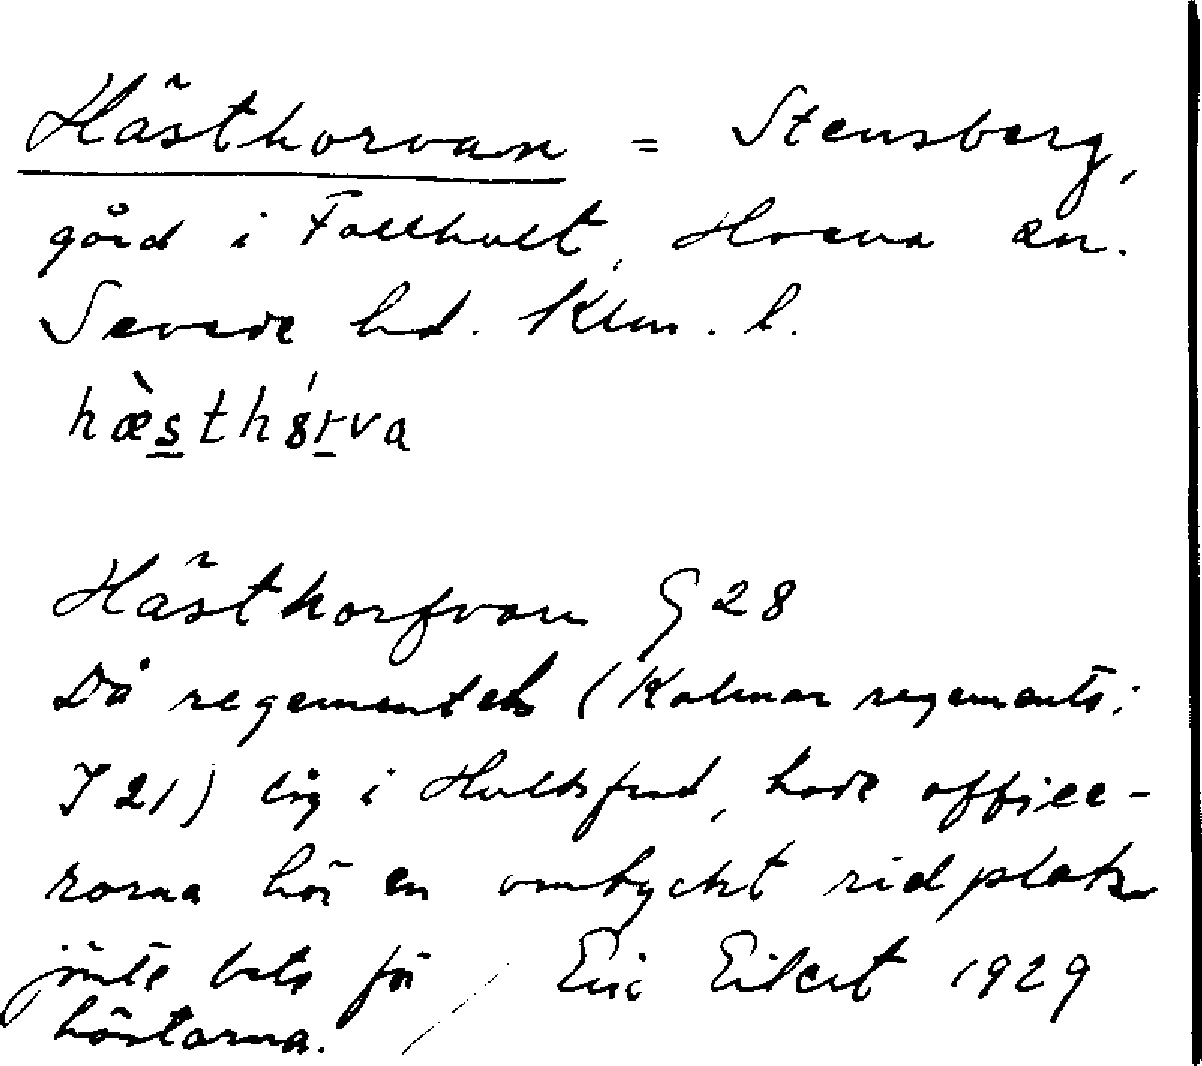 Hästhorvan = Stensberg,
gård i Fallhult, Morena sn.
Sevede hd. Klm. l.
hæ̀sthó̱rva
Hästhorfvan G 28
Då regementet (Kalmar regements:
I 21) låg i Hultsfred, hade office-
rarna här en omtyckt ridplats
jämte bete för / Eric Eilert 1929
hästarna.